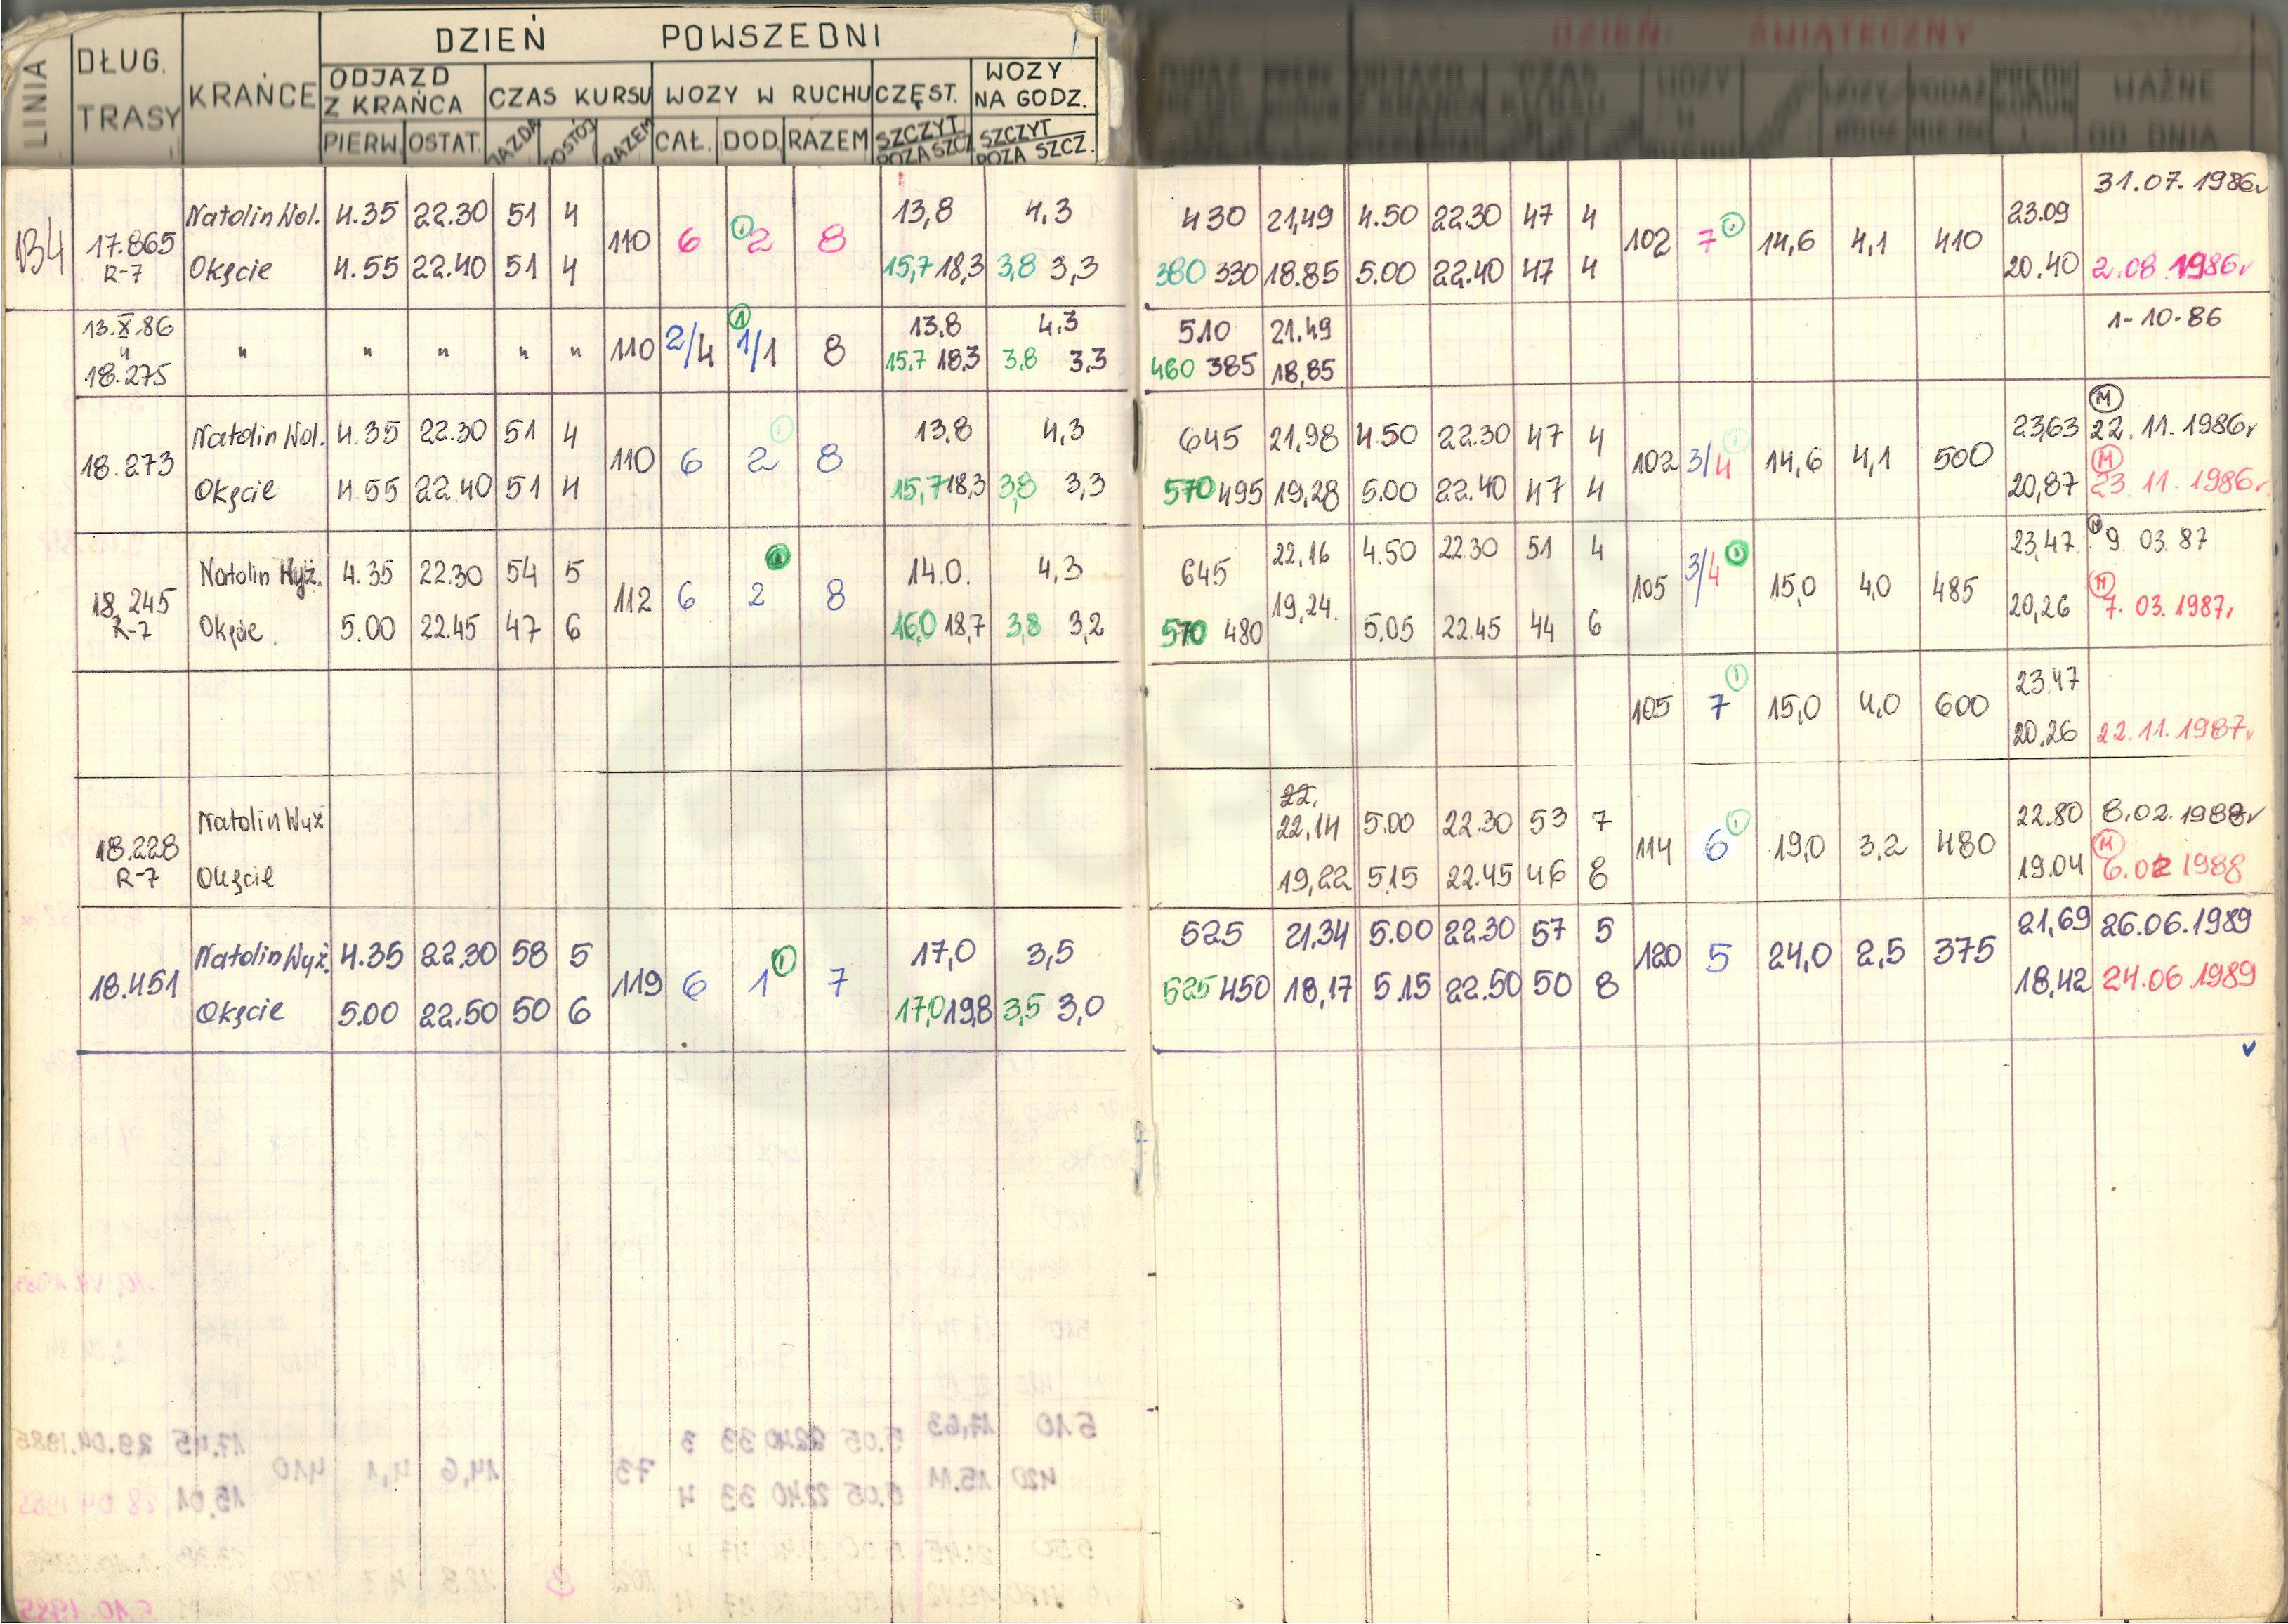 DZIEŃ POWSZEDNI
LINIA DŁUG. TRASY KRAŃCE ODJAZD Z KRAŃCA CZAS KURSU WOZY W RUCHU CZĘST. WOZY NA GODZ.
PIERW. OSTAT. JAZDA POSTÓJ RAZEM CAŁ. DOD. RAZEM SZCZYT POZA SZCZ. SZCZYT POZA SZCZ.
DZIEŃ ŚWIĄTECZNY
WAŻNE OD DNIA
31.07.1986r
Natolin Wol. 4.35 22.30 51 4 13,8 4,3 430 21,49 4.50 22.30 47 4 23.09
134 17.865 110 6 1 2 8 102 7 1 14,6 4,1 410
R-7 Okęcie 4.55 22.40 51 4 15,7 18,3 3,8 3,3 380 330 18.85 5.00 22.40 47 4 20.40 2.08.1986r
13.X.86 1 13,8 4,3 510 21.49 1-10-86
" " " " " " 110 2/4 1/1 8
18.275 15,7 18,3 3,8 3,3 460 385 18,85
M
Natolin Wol. 4.35 22.30 51 4 1 13,8 4,3 645 21,98 4.50 22.30 47 4 23,63 22.11.1986r
18.273 110 6 2 8 102 3/4 1 14,6 4,1 500 M
Okęcie 4.55 22.40 51 4 15,7 18,3 3,8 3,3 570 495 19,28 5.00 22.40 47 4 20,87 23.11.1986r
Natolin Wyż. 4.35 22.30 54 5 1 14.0. 4,3 645 22,16 4.50 22.30 51 4 23,47 M 9.03.87
18.245 112 6 2 8 105 3/4 1 15,0 4,0 485 M
R-7 Okęcie. 5.00 22.45 47 6 16,0 18,7 3,8 3,2 570 480 19,24. 5.05 22.45 44 6 20,26 7.03.1987r
23.47
105 7 1 15,0 4,0 600
20,26 22.11.1987r
22.
Natolin Wyż 22,14 5.00 22.30 53 7 22.80 8.02.1988r
18.228 114 6 1 19,0 3,2 480 M
R-7 Okęcie 19,22 5.15 22.45 46 8 19.04 6.02 1988
Natolin Wyż. 4.35 22.30 58 5 17,0 3,5 525 21,34 5.00 22.30 57 5 21,69 26.06.1989
18.451 119 6 1 1 7 120 5 24,0 2,5 375
Okęcie 5.00 22.50 50 6 17,0 19,8 3,5 3,0 525 450 18,17 5.15 22.50 50 8 18,42 24.06.1989